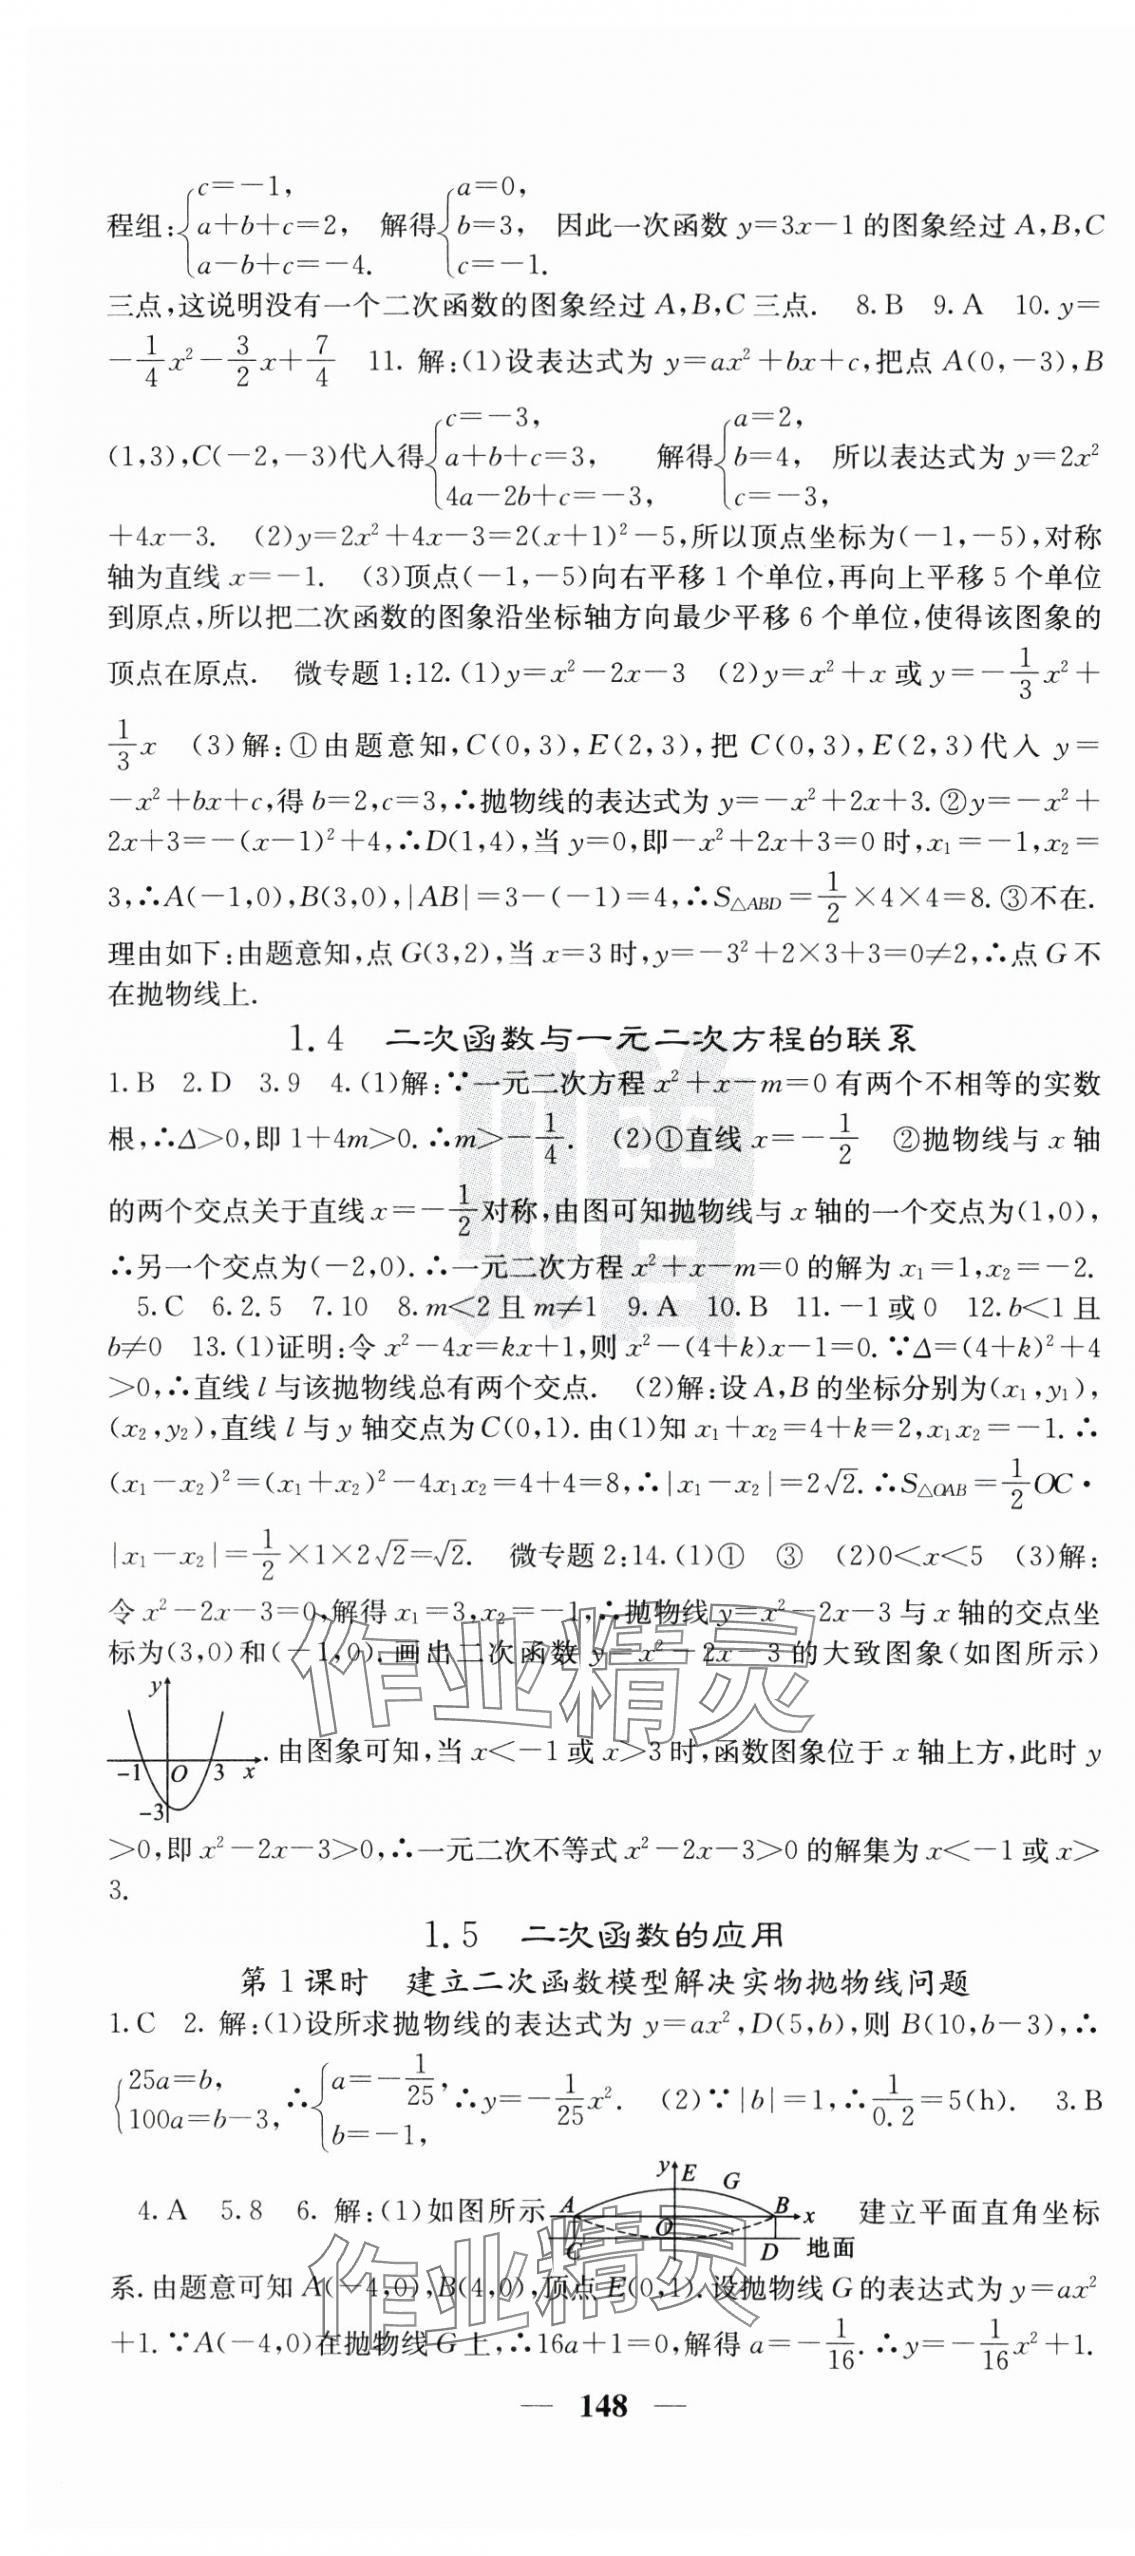 程组:{c=-1, a+b+c=2, a-b+c=-4. 解得{a=0, b=3, c=-1. 因此一次函数 y=3x-1 的图象经过 A,B,C
三点,这说明没有一个二次函数的图象经过 A,B,C 三点. 8.B 9.A 10.y=
-1/4x²-3/2x+7/4 11. 解:(1)设表达式为 y=ax²+bx+c,把点 A(0,-3),B
(1,3),C(-2,-3)代入得{c=-3, a+b+c=3, 4a-2b+c=-3, 解得{a=2, b=4, c=-3, 所以表达式为 y=2x²
+4x-3. (2)y=2x²+4x-3=2(x+1)²-5,所以顶点坐标为(-1,-5),对称
轴为直线 x=-1. (3)顶点(-1,-5)向右平移 1 个单位,再向上平移 5 个单位
到原点,所以把二次函数的图象沿坐标轴方向最少平移 6 个单位,使得该图象的
顶点在原点. 微专题 1:12.(1)y=x²-2x-3 (2)y=x²+x 或 y=-1/3x²+
1/3x (3)解:①由题意知,C(0,3),E(2,3),把 C(0,3),E(2,3)代入 y=
-x²+bx+c,得 b=2,c=3,∴抛物线的表达式为 y=-x²+2x+3.②y=-x²+
2x+3=-(x-1)²+4,∴D(1,4),当 y=0,即-x²+2x+3=0 时,x₁=-1,x₂=
3,∴A(-1,0),B(3,0),|AB|=3-(-1)=4,∴S△ABD=1/2×4×4=8.③不在.
理由如下:由题意知,点 G(3,2),当 x=3 时,y=-3²+2×3+3=0≠2,∴点 G 不
在抛物线上.
1.4 二次函数与一元二次方程的联系
1.B 2.D 3.9 4.(1)解:∵一元二次方程 x²+x-m=0 有两个不相等的实数
根,∴Δ>0,即 1+4m>0.∴m>-1/4. (2)①直线 x=-1/2 ②抛物线与 x 轴
的两个交点关于直线 x=-1/2对称,由图可知抛物线与 x 轴的一个交点为(1,0),
∴另一个交点为(-2,0).∴一元二次方程 x²+x-m=0 的解为 x₁=1,x₂=-2.
5.C 6.2.5 7.10 8.m<2 且 m≠1 9.A 10.B 11.-1 或 0 12.b<1 且
b≠0 13.(1)证明:令 x²-4x=kx+1,则 x²-(4+k)x-1=0.∵Δ=(4+k)²+4
>0,∴直线 l 与该抛物线总有两个交点. (2)解:设 A,B 的坐标分别为(x₁,y₁),
(x₂,y₂),直线 l 与 y 轴交点为 C(0,1).由(1)知 x₁+x₂=4+k=2,x₁x₂=-1.∴
(x₁-x₂)²=(x₁+x₂)²-4x₁x₂=4+4=8,∴|x₁-x₂|=2√2.∴S△OAB=1/2OC·
|x₁-x₂|=1/2×1×2√2=√2. 微专题 2:14.(1)① ③ (2)0<x<5 (3)解:
令 x²-2x-3=0,解得 x₁=3,x₂=-1,∴抛物线 y=x²-2x-3 与 x 轴的交点坐
标为(3,0)和(-1,0).画出二次函数 y=x²-2x-3 的大致图象(如图所示)
y
-1 O 3 x
-3
.由图象可知,当 x<-1 或 x>3 时,函数图象位于 x 轴上方,此时 y
>0,即 x²-2x-3>0,∴一元二次不等式 x²-2x-3>0 的解集为 x<-1 或 x>
3.
1.5 二次函数的应用
第 1 课时 建立二次函数模型解决实物抛物线问题
1.C 2. 解:(1)设所求抛物线的表达式为 y=ax²,D(5,b),则 B(10,b-3),∴
{25a=b, 100a=b-3, ∴{a=-1/25, b=-1, ∴y=-1/25x². (2)∵|b|=1,∴1/0.2=5(h). 3.B
4.A 5.8 6. 解:(1)如图所示
y E G
A O B x
C D 地面
建立平面直角坐标
系.由题意可知 A(-4,0),B(4,0),顶点 E(0,1).设抛物线 G 的表达式为 y=ax²
+1.∵A(-4,0)在抛物线 G 上,∴16a+1=0,解得 a=-1/16.∴y=-1/16x²+1.
— 148 —
作业精灵
作业精灵